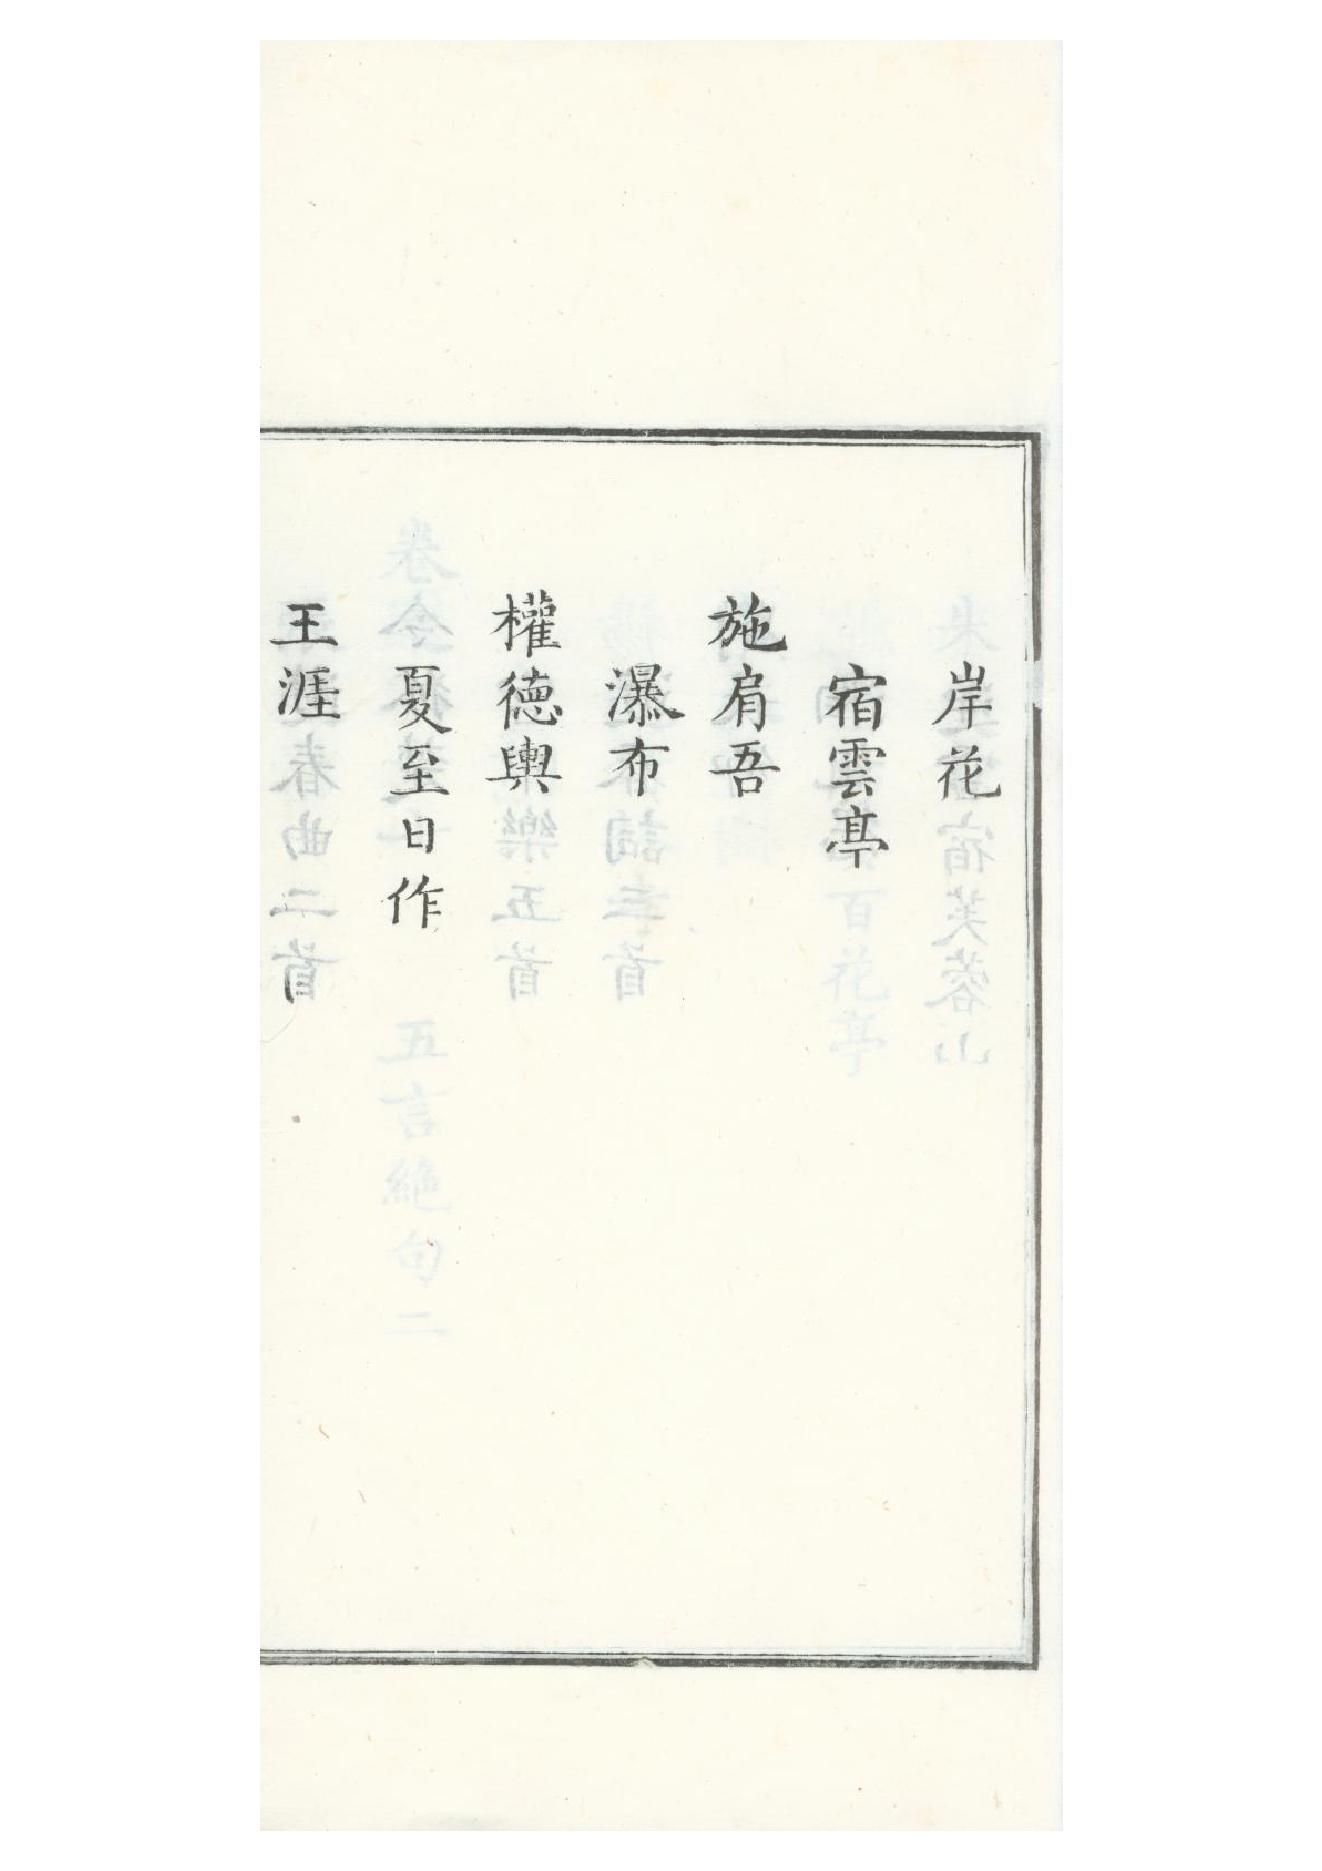 岸花
宿雲亭
施肩吾
瀑布
權德輿
夏至日作
王涯